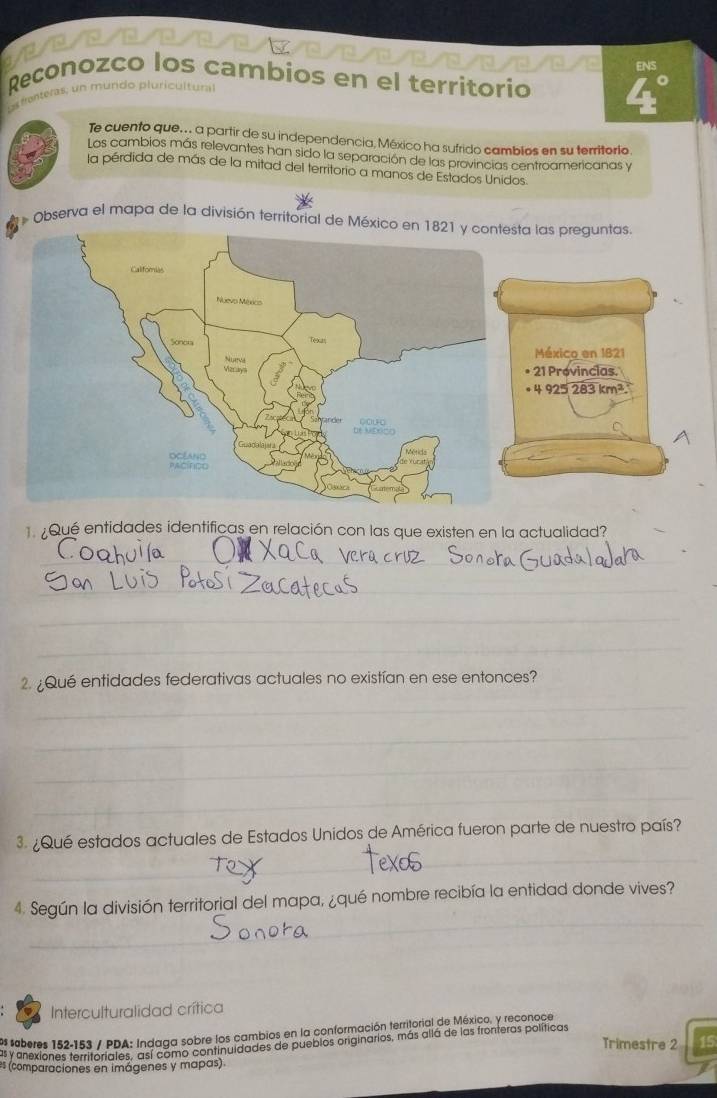 Reconozco los cambios en el territorio
ENS
4°
fronteras, un mundo pluricultural
Te cuento que... a partir de su independencia, México ha sufrido cambios en su territorio.
Los cambios más relevantes han sido la separación de las provincias centroamericanas y
la pérdida de más de la mitad del territorio a manos de Estados Unidos.
Observa el mapa de la división territorial de México en 1821 y contesta las preguntas.
Californias
Nuevo México
Sonora
Texas
Nueva
Vizcaya
Coahuila
GOLFO DE CALIFORNIA
Nuevo
Reino
de
León
Zacatecas
Santander
San Luis Potosí
GOLFO
DE MÉXICO
Guadalajara
OCÉANO
PACÍFICO
Valladolid
México
Veracruz
Mérida
de Yucatán
Oaxaca
Guatemala
México en 1821
• 21 Provincias.
• 4 925 283 km².
1. ¿Qué entidades identificas en relación con las que existen en la actualidad?
Coahuila Oaxaca veracruz Sonora Guadaladara
San Luis Potosí Zacatecas
2. ¿Qué entidades federativas actuales no existían en ese entonces?
3. ¿Qué estados actuales de Estados Unidos de América fueron parte de nuestro país?
Tex texas
4. Según la división territorial del mapa, ¿qué nombre recibía la entidad donde vives?
Sonora
Interculturalidad crítica
saberes 152-153 / PDA: Indaga sobre los cambios en la conformación territorial de México, y reconoce
y anexiones territoriales, así como continuidades de pueblos originarios, más allá de las fronteras políticas
(comparaciones en imágenes y mapas).
Trimestre 2
15